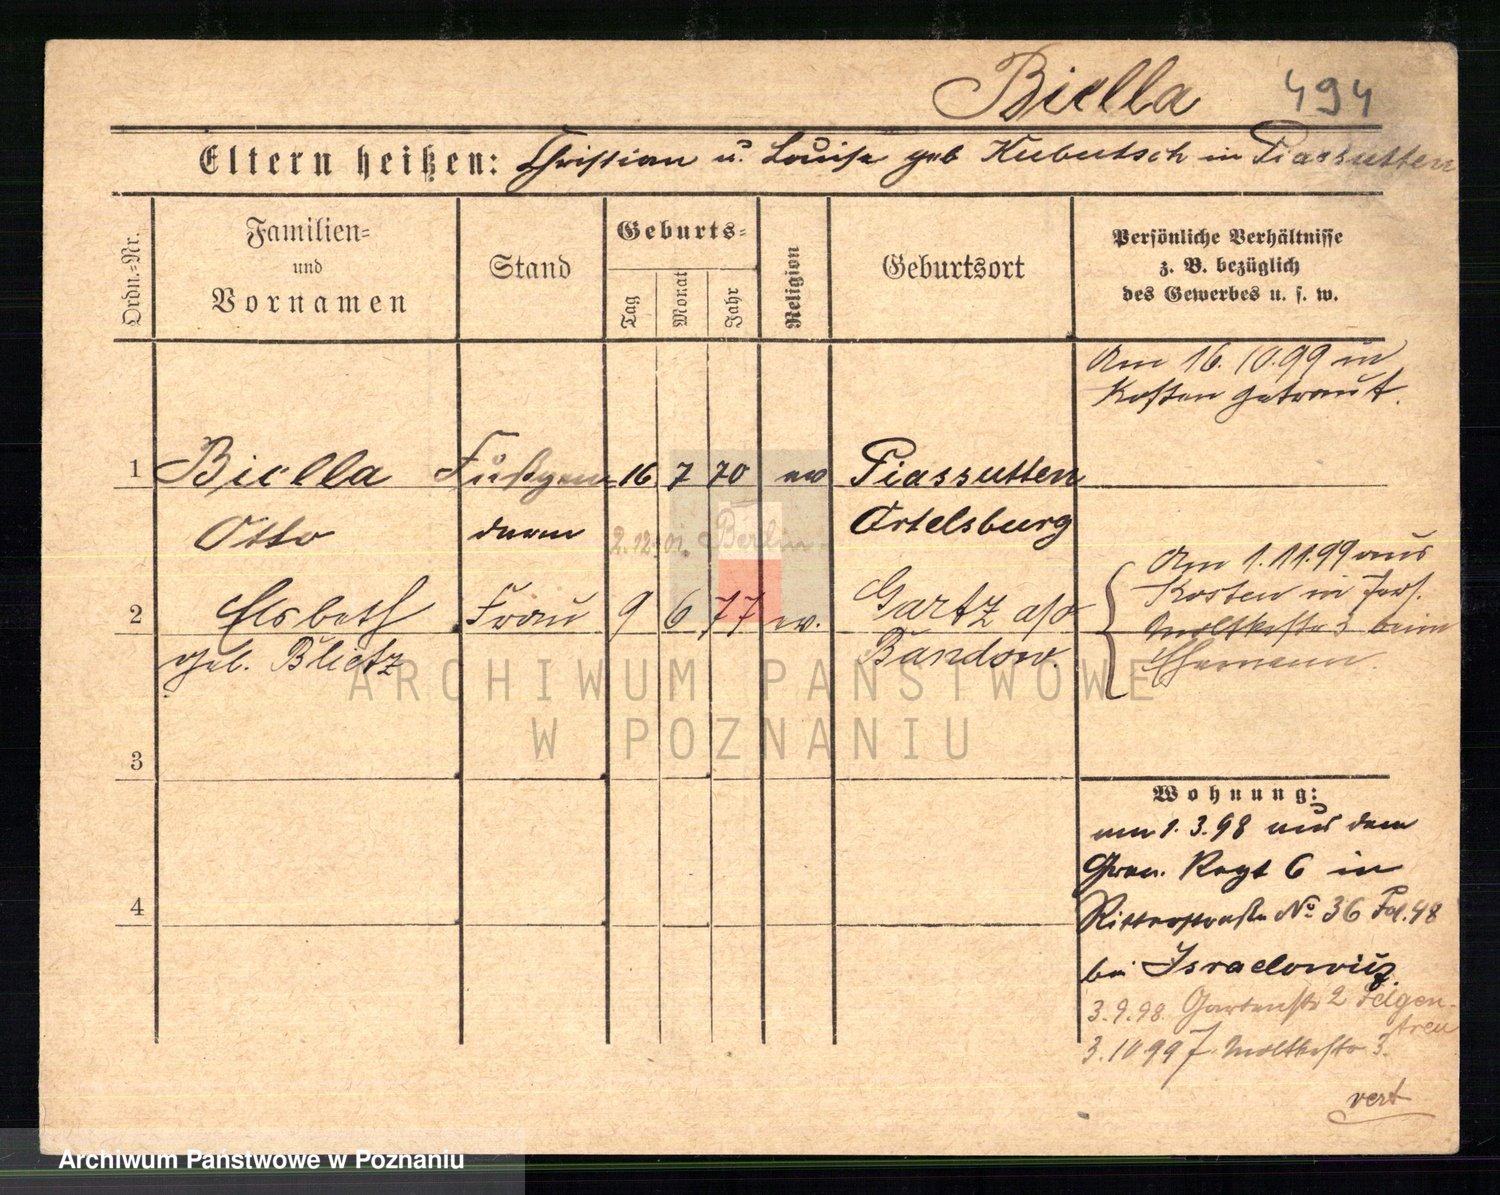 Biella 494
Eltern heißen: Christian u. Louise geb Kubutsch in Piassutten
Ordn.-Nr.
Familien-
und
Vornamen
Stand
Geburts-
Tag
Monat
Jahr
Religion
Geburtsort
Persönliche Verhältnisse
z. B. bezüglich
des Gewerbes u. s. w.
Am 16.10.99 in
Kosten getraut.
1 Biella Fußgen 16 7 70 ev Piassutten
Otto darm 2.12.01. Berlin Ortelsburg
2 Elsbeth Frau 9 6 77 ev. Gartz a/o
geb. Blietz Bandow.
Am 1.11.99 aus
Kosten in
Moltkestr 3 beim
Ehemann.
3
4
Wohnung:
am 1.3.98 aus dem
Gren. Regt 6 in
Ritterstraße No 36 48
bei Israelowicz
3.9.98. Gartenstr 2 Felgen-
treu
3.10 99 Moltkestr 3.
vert
ARCHIWUM PAŃSTWOWE
W POZNANIU
Archiwum Państwowe w Poznaniu